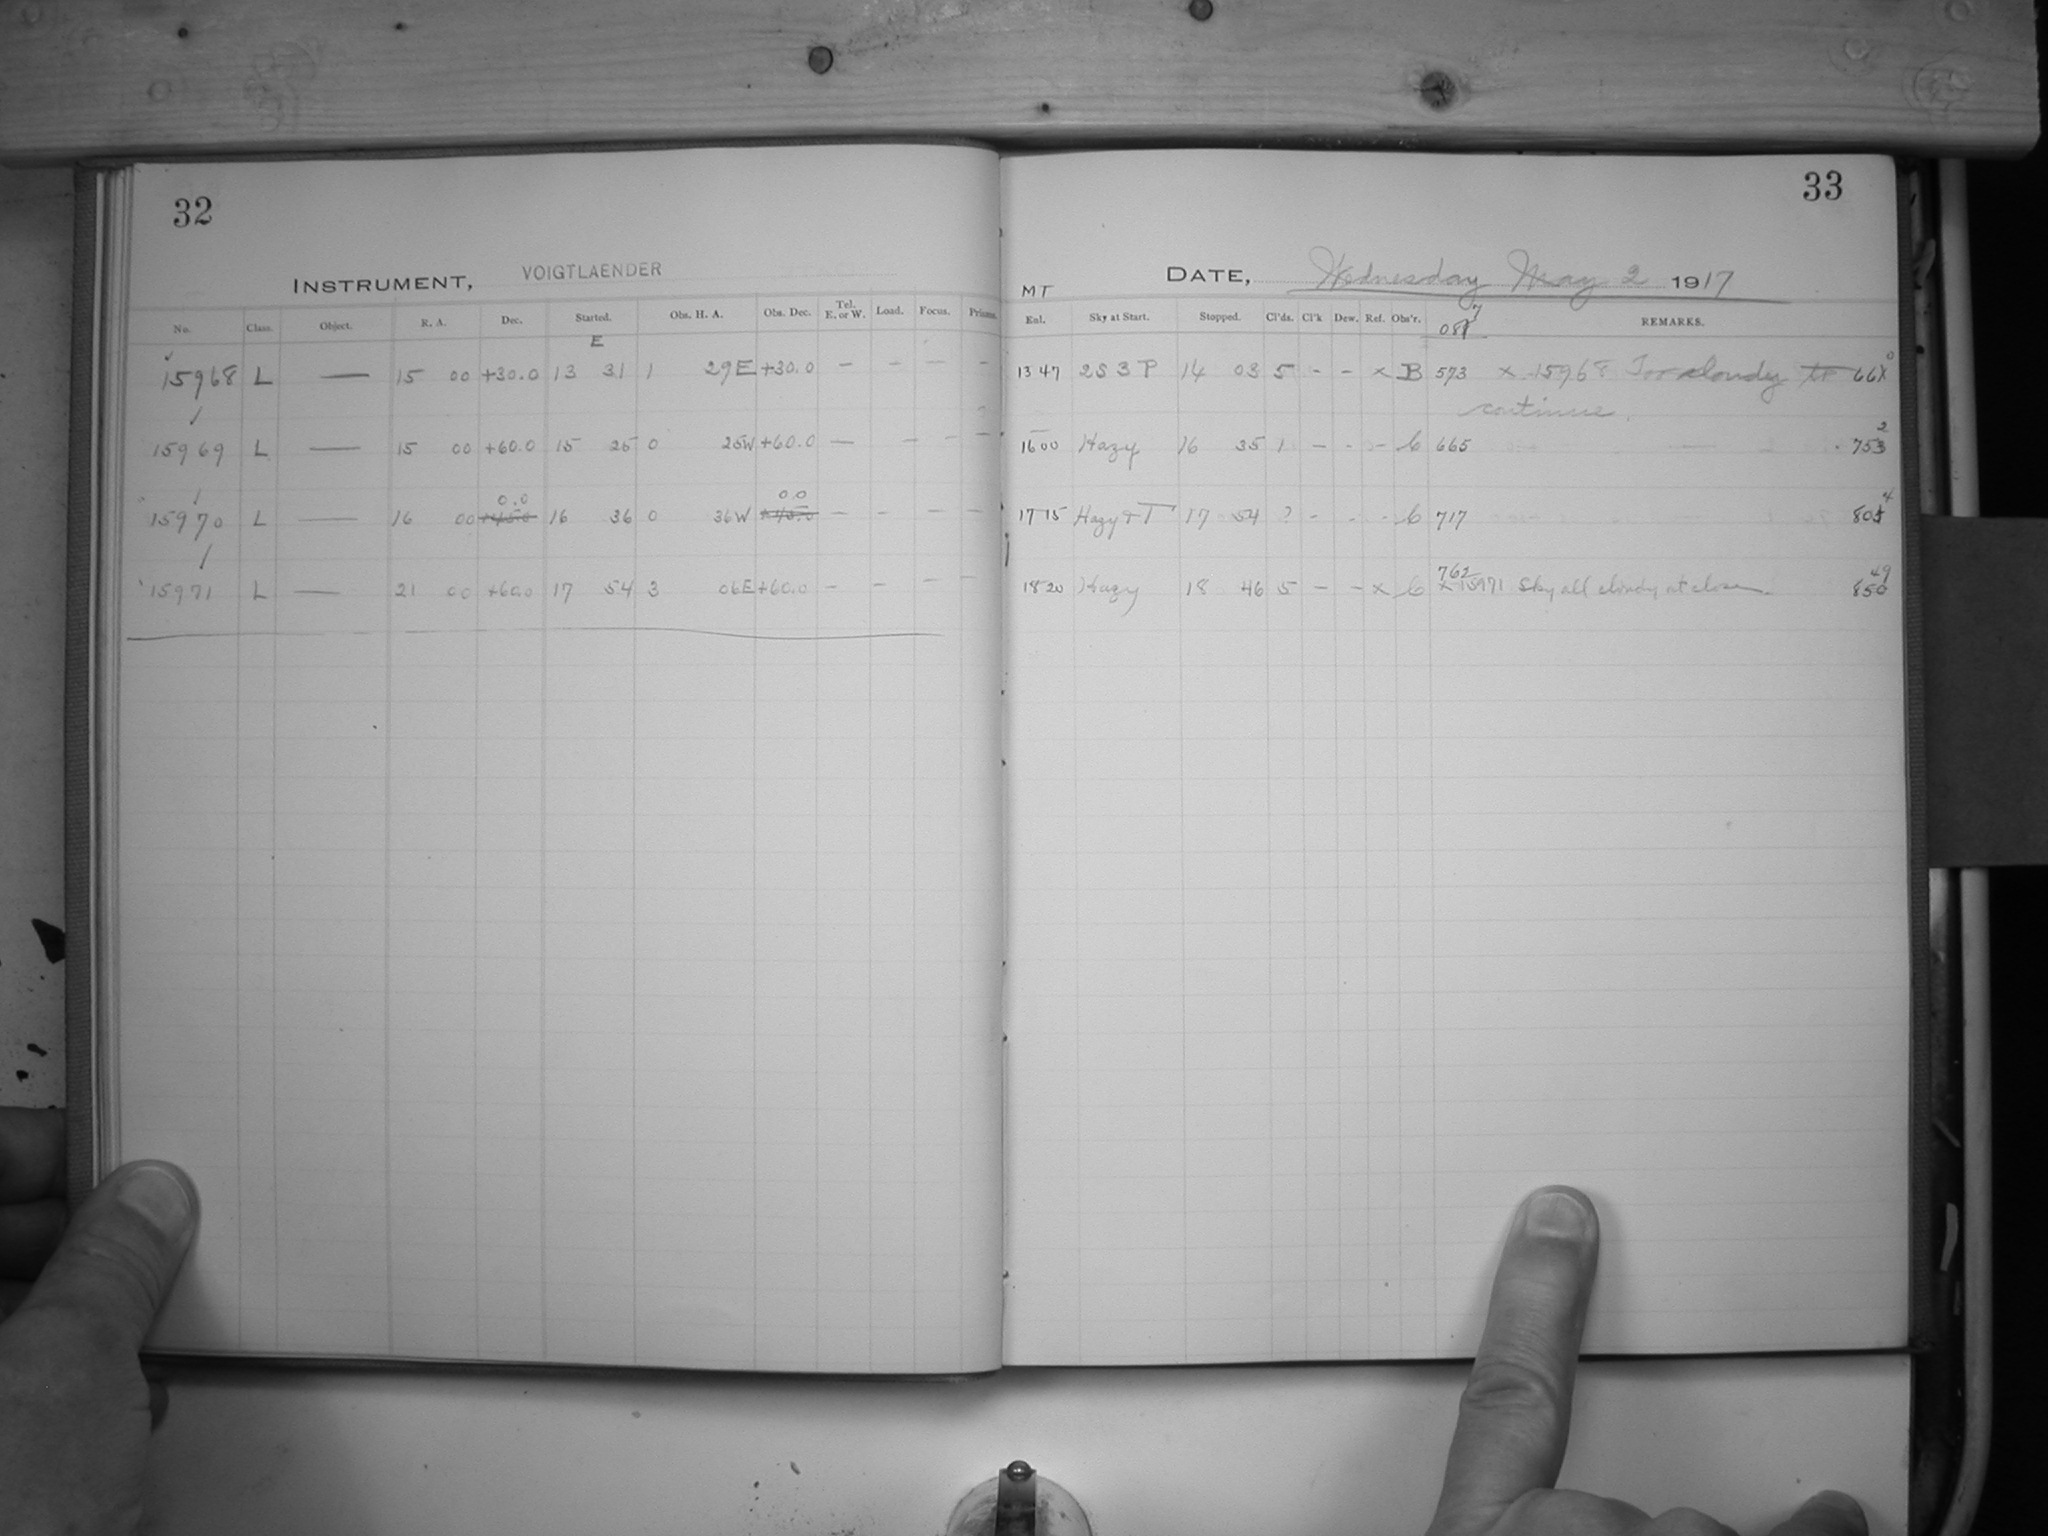 32
INSTRUMENT, VOIGTLAENDER
No. Class. Object. R. A. Dec. Started. Obs. H. A. Obs. Dec. Tel. E. or W. Load. Focus. Prisms.
E
15968 L — 15 00 +30.0 13 31 1 29E +30.0 — — — —
15969 L — 15 00 +60.0 15 25 0 25W +60.0 — — — —
0.0 0.0
15970 L — 16 00 16 36 0 36W — — — —
15971 L — 21 00 +60.0 17 54 3 06E +60.0 — — — —
33
DATE, Wednesday May 2 1917
MT
Ent. Sky at Start. Stopped. Cl'ds. Cl'k Dew. Ref. Obs'r. REMARKS.
13 47 2S 3 P 14 03 5 - - x B 573 x 15968 Too cloudy to 66
continue.
16 00 Hazy 16 35 1 - - - b 665 753
17 15 Hazy + T 17 54 ? - - - b 717 80
762 49
18 20 Hazy 18 46 5 - - x b x 15971 Sky all cloudy at close. 850